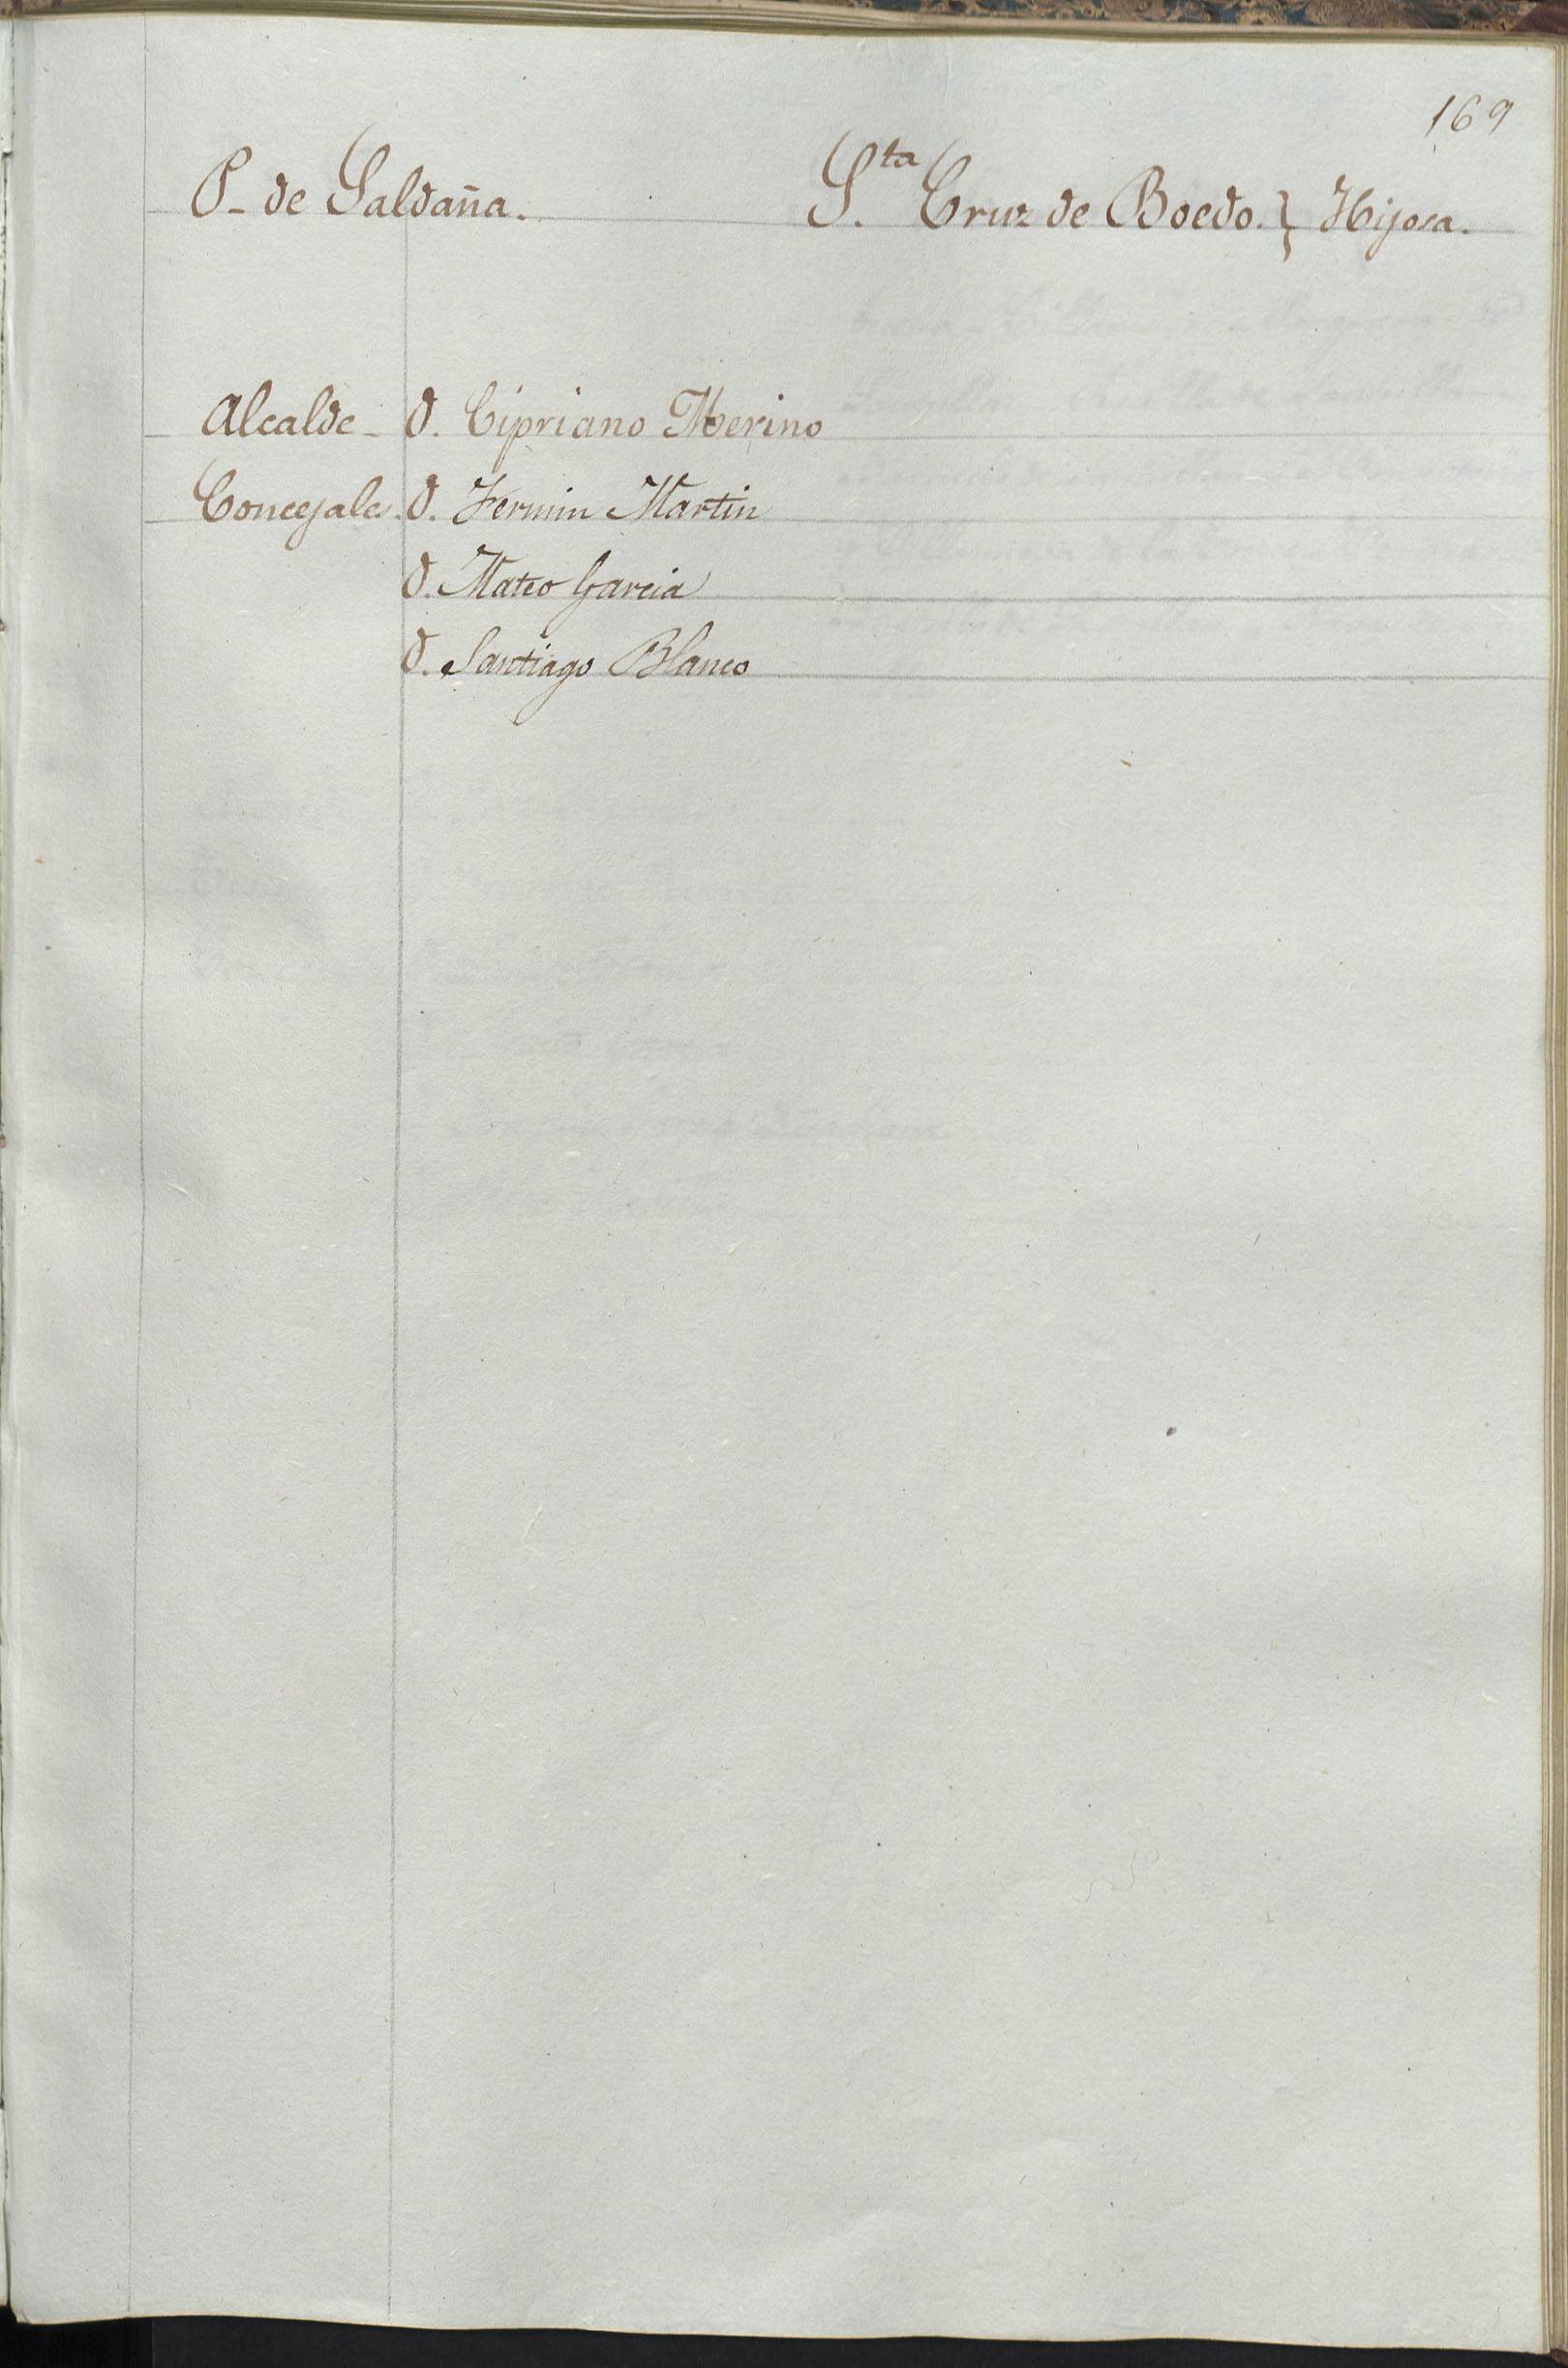 169
P- de Saldaña. Sta. Cruz de Boedo. } Hijosa.
Alcalde - D. Cipriano Merino
Concejales. D. Fermin Martin
D. Mateo Garcia
D. Santiago Blanco